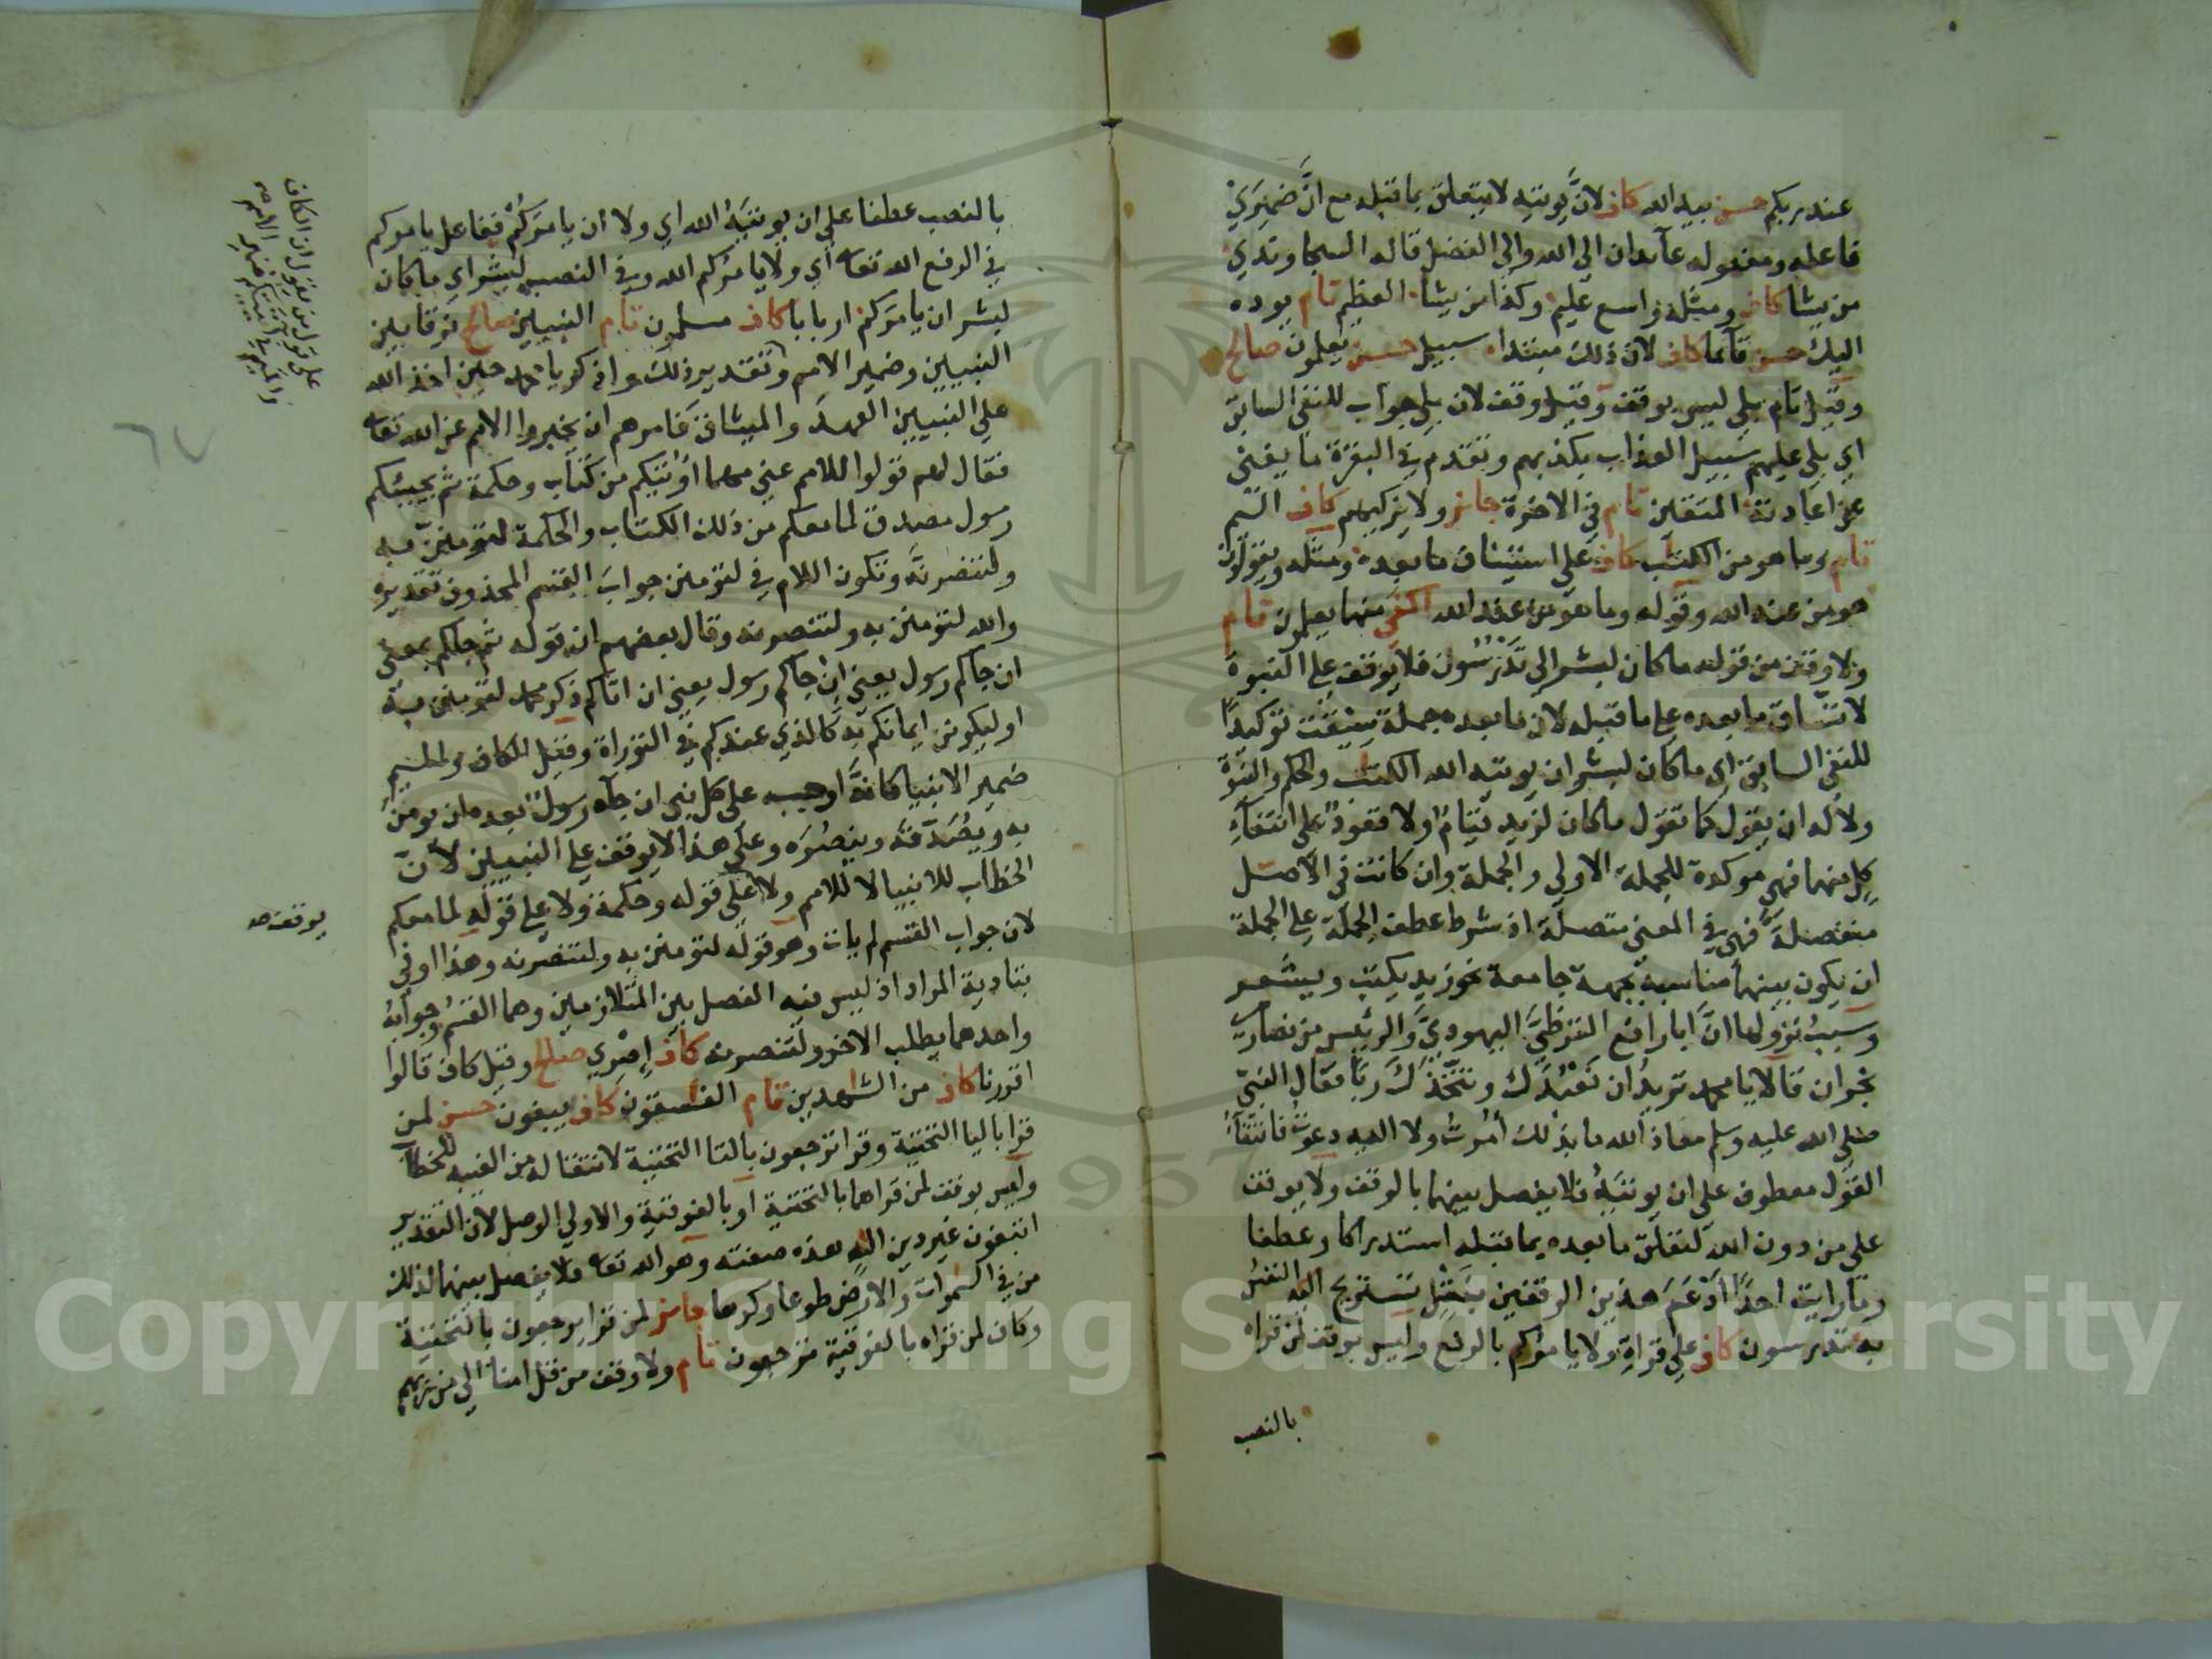 عند ربكم حسن بيد الله كاف لان يوتيه لا يتعلق بما قبله مع ان ضميري
فاعله ومفعوله عائدان الى الله والى الفضل قاله السجاوندي
من يشا كاف ومثله واسع عليم وكذا من يشا العظيم تام يوده
اليك حسن قائما كاف لان ذلك مبتدا سبيل حسن يعلمون صالح
وقيل تام بلى ليس بوقف وقيل وقف لان بلى جواب للنفي السابق
اي بلى عليهم سبيل العذاب بكذبهم وتقدم في البقرة ما يغني
عن اعادته المتقين تام في الاخرة جائز ولا يزكيهم كاف اليم
تام وما هو من الكتب كاف على استيناف ما بعده ومثله ويقولون
هو من عند الله وقوله وما هو من عند الله اكفى منهما يعلمون تام
ولا وقف من قوله ما كان لبشر الى تدرسون فلا يوقف على النبوة
لاتساق ما بعده على ما قبله لان ما بعده جملة سيقت توكيدا
للنفي السابق اي ما كان لبشر ان يوتيه الله الكتب والحكم والنبوة
ولا له ان يقول كما تقول ما كان لزيد قيام ولا قعود على انتفاء
كل منهما فهي موكدة للجملة الاولى والجملة وان كانت في الاصل
منفصلة فهي في المعنى متصلة اذ شرط عطف الجملة على الجملة
ان يكون بينهما مناسبة بجهة جامعة نحو زيد يكتب ويشعر
وسبب نزولها ان ابا رافع القرظي اليهودي والرئيس من نصارى
نجران قالا يا محمد تريد ان نعبدك ونتخذك ربا فقال النبي
صلى الله عليه وسلم معاذ الله ما بذلك امرت ولا اليه دعوت فانتفاء
القول معطوف على ان يوتيه فلا يفصل بينهما بالوقف ولا يوقف
على من دون الله لتعلق ما بعده بما قبله استدراكا وعطفا
وما رايت احدا دعم هذين الوقفين بنقل تستريح اليه النفس
به تدرسون كاف على قراة ولا يامركم بالرفع وليس بوقف لمن قراه
بالنصب
بالنصب عطفا على ان يوتيه الله اي ولا ان يامركم ففاعل يامركم
في الرفع الله تعا اي ولا يامركم الله وفي النصب لبشر اي ما كان
لبشر ان يامركم اربابا كاف مسلمون تام النبيين صالح فرقا بين
النبيين وضمير الامم وتقدير ذلك واذكر يا محمد حين اخذ الله
على النبيين العهد والميثاق فامرهم ان يخبروا الامم عن الله تعا
فقال لهم قولوا للامم عني مهما اوتيكم من كتاب وحكمة ثم يجيئكم
رسول مصدق لما معكم من ذلك الكتاب والحكمة لتومنن به
ولتنصرنه وتكون اللام في لتومنن جواب القسم المحذوف تقديره
والله لتومنن به ولتنصرنه وقال بعضهم ان قوله ثم جاكم بمعنى
ان جاكم رسول يعني ان جاكم رسول يعني ان اتاكم ذكر محمد لتومنن به
او ليكونن ايمانكم به كالذي عندكم في التوراة وقيل الكاف والميم
ضمير الانبيا كانه اوجب على كل نبي ان جاه رسول بعده ان يومن
به ويصدقه وينصره وعلى هذا لا يوقف على النبيين لان
الخطاب للانبيا لا للامم ولا على قوله وحكمة ولا على قوله لما معكم
لان جواب القسم لم يات وهو قوله لتومنن به ولتنصرنه وهذا اوفى
بتادية المراد اذ ليس فيه الفصل بين المتلازمين وهما القسم وجوابه
واحدهما يطلب الاخر ولتنصرنه كاف إصري صالح وقيل كاف قالوا
اقررنا كاف من الشهدين تام الفسقون كاف يبغون حسن لمن
قرا باليا التحتية وقرا ترجعون بالتا التحتية لانتقاله من الغيبة للخطاب
وليس بوقف لمن قراهما بالتحتية او بالفوقية والاولى الوصل لان التقدير
اتبغون غير دين الله هذه صفته وهو الله تعا فلا يفصل بينهما لذلك
من في السموات والارض طوعا وكرها جائز لمن قرا يرجعون بالتحتية
وكاف لمن قراه بالفوقية ترجعون تام ولا وقف من قل امنا الى من ربهم
على قول من يقول ان الكاف
يوقف صه
٦٧
Copyright © King Saud University
1957